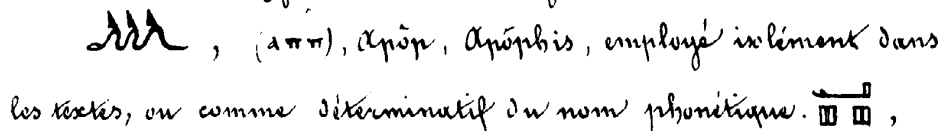 𓆙, (aππ), Apôp, Apôphis, employé isolément dans
les textes, ou comme déterminatif du nom phonétique. 𓂝𓊪𓊪,